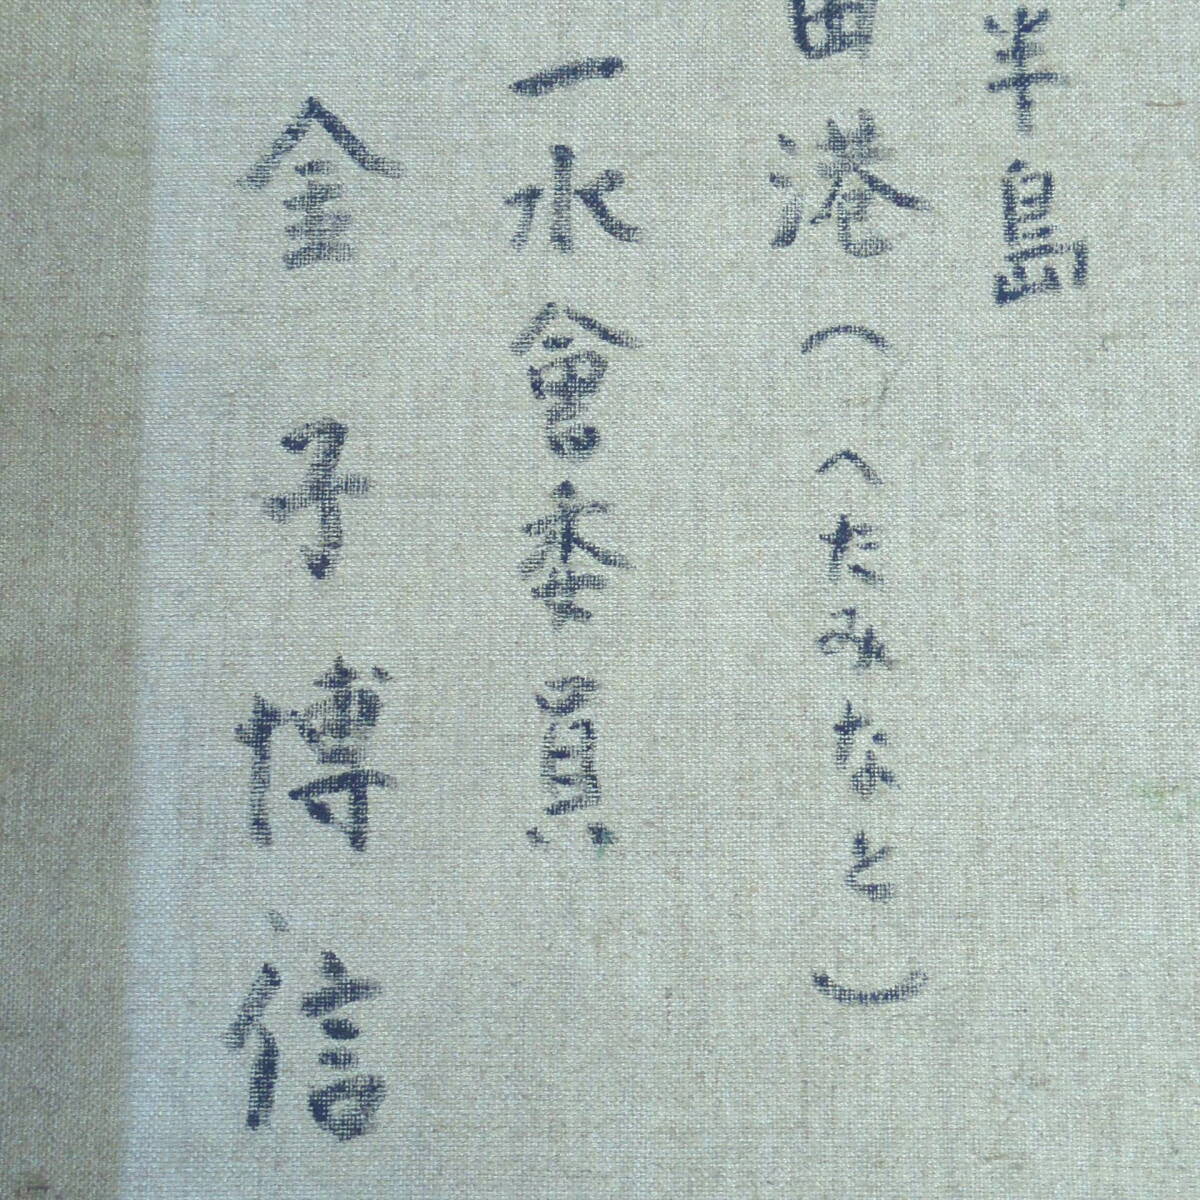 半島
田港(へたみなと)
一水會委員
金子博信